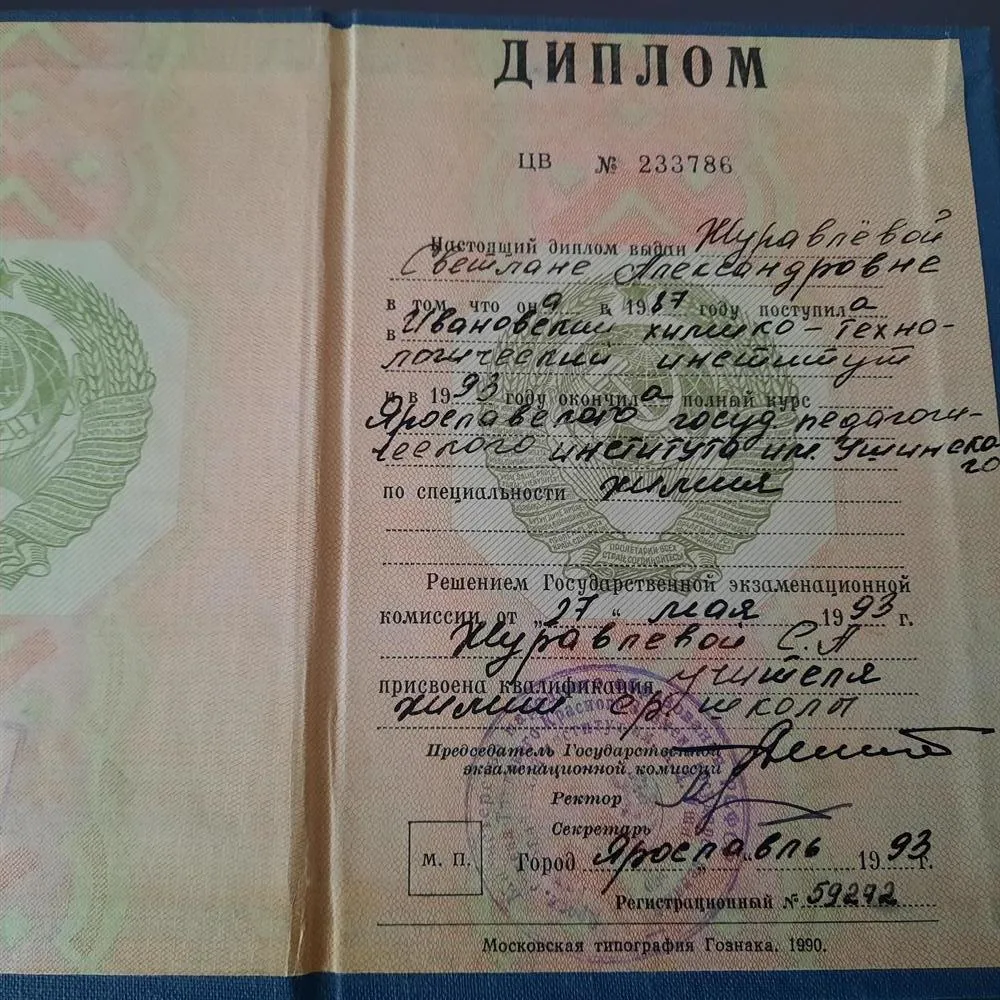 ДИПЛОМ
ЦВ № 233786
Настоящий диплом выдан Журавлёвой
Светлане Александровне
в том, что она в 1987 году поступила
в Ивановский химико-техно-
логический институт
и в 1993 году окончила полный курс
Ярославского госуд. педагоги-
ческого института им. Ушинско
го
по специальности химия
ПРОЛЕТАРИИ ВСЕХ
СТРАН, СОЕДИНЯЙТЕСЬ!
Решением Государственной экзаменационной
комиссии от „27“ мая 1993 г.
Журавлевой С.А
присвоена квалификация учителя
химии ср. школы
Председатель Государственной
экзаменационной комиссии
Ректор
Секретарь
М. П.
Город Ярославль 1993 г.
Регистрационный № 59292
Московская типография Гознака. 1990.